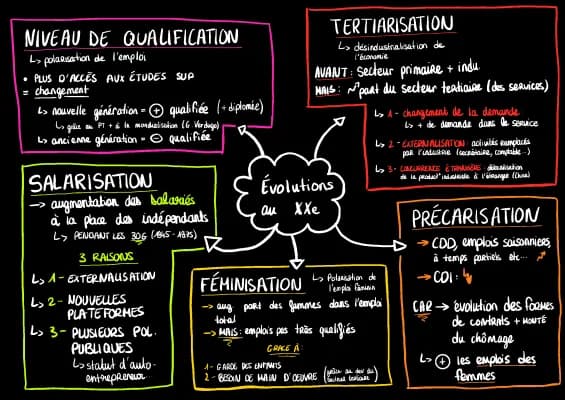 NIVEAU DE QUALIFICATION
↳ polarisation de l'emploi
• PLUS D'ACCÈS AUX ÉTUDES SUP
= changement
↳ nouvelle génération = + qualifiée (+ diplomée)
↳ grâce au PT + à la mondialisation (G Verdugo)
↳ ancienne génération = - qualifiée
TERTIARISATION
↳ désindustrialisation de
l'économie
AVANT : Secteur primaire + indu
MAIS : ↗ part du secteur tertiaire (des services)
↳ 1 - changement de la demande
↳ + de demande dans le service
↳ 2 - EXTERNALISATION : activités
par l'industrie (secrétaire, comptable...)
↳ 3 - CONCURRENCE ÉTRANGÈRE : délocalisation
de la product° industrielle à l'étranger (Chine)
Évolutions
au XXe
SALARISATION
→ augmentation des salariés
à la place des indépendants
↳ PENDANT LES 30G (1945-1975)
3 RAISONS
↳ 1 - EXTERNALISATION
↳ 2 - NOUVELLES
PLATEFORMES
↳ 3 - PLUSIEURS POL.
PUBLIQUES
↳ statut d'auto-
entrepreneur
FÉMINISATION
↳ Polarisation de
l'emploi féminin
→ aug part des femmes dans l'emploi
total
→ MAIS : emplois pas très qualifiés
GRACE À :
1 - GARDE DES ENFANTS
2 - BESOIN DE MAIN D'OEUVRE (grâce au dev du
secteur tertiaire)
PRÉCARISATION
→ CDD, emplois saisonniers,
à temps partiels etc... ↗
→ CDI : ↘
CAR → évolution des formes
de contrats + monté
du chômage
↳ + les emplois des
femmes